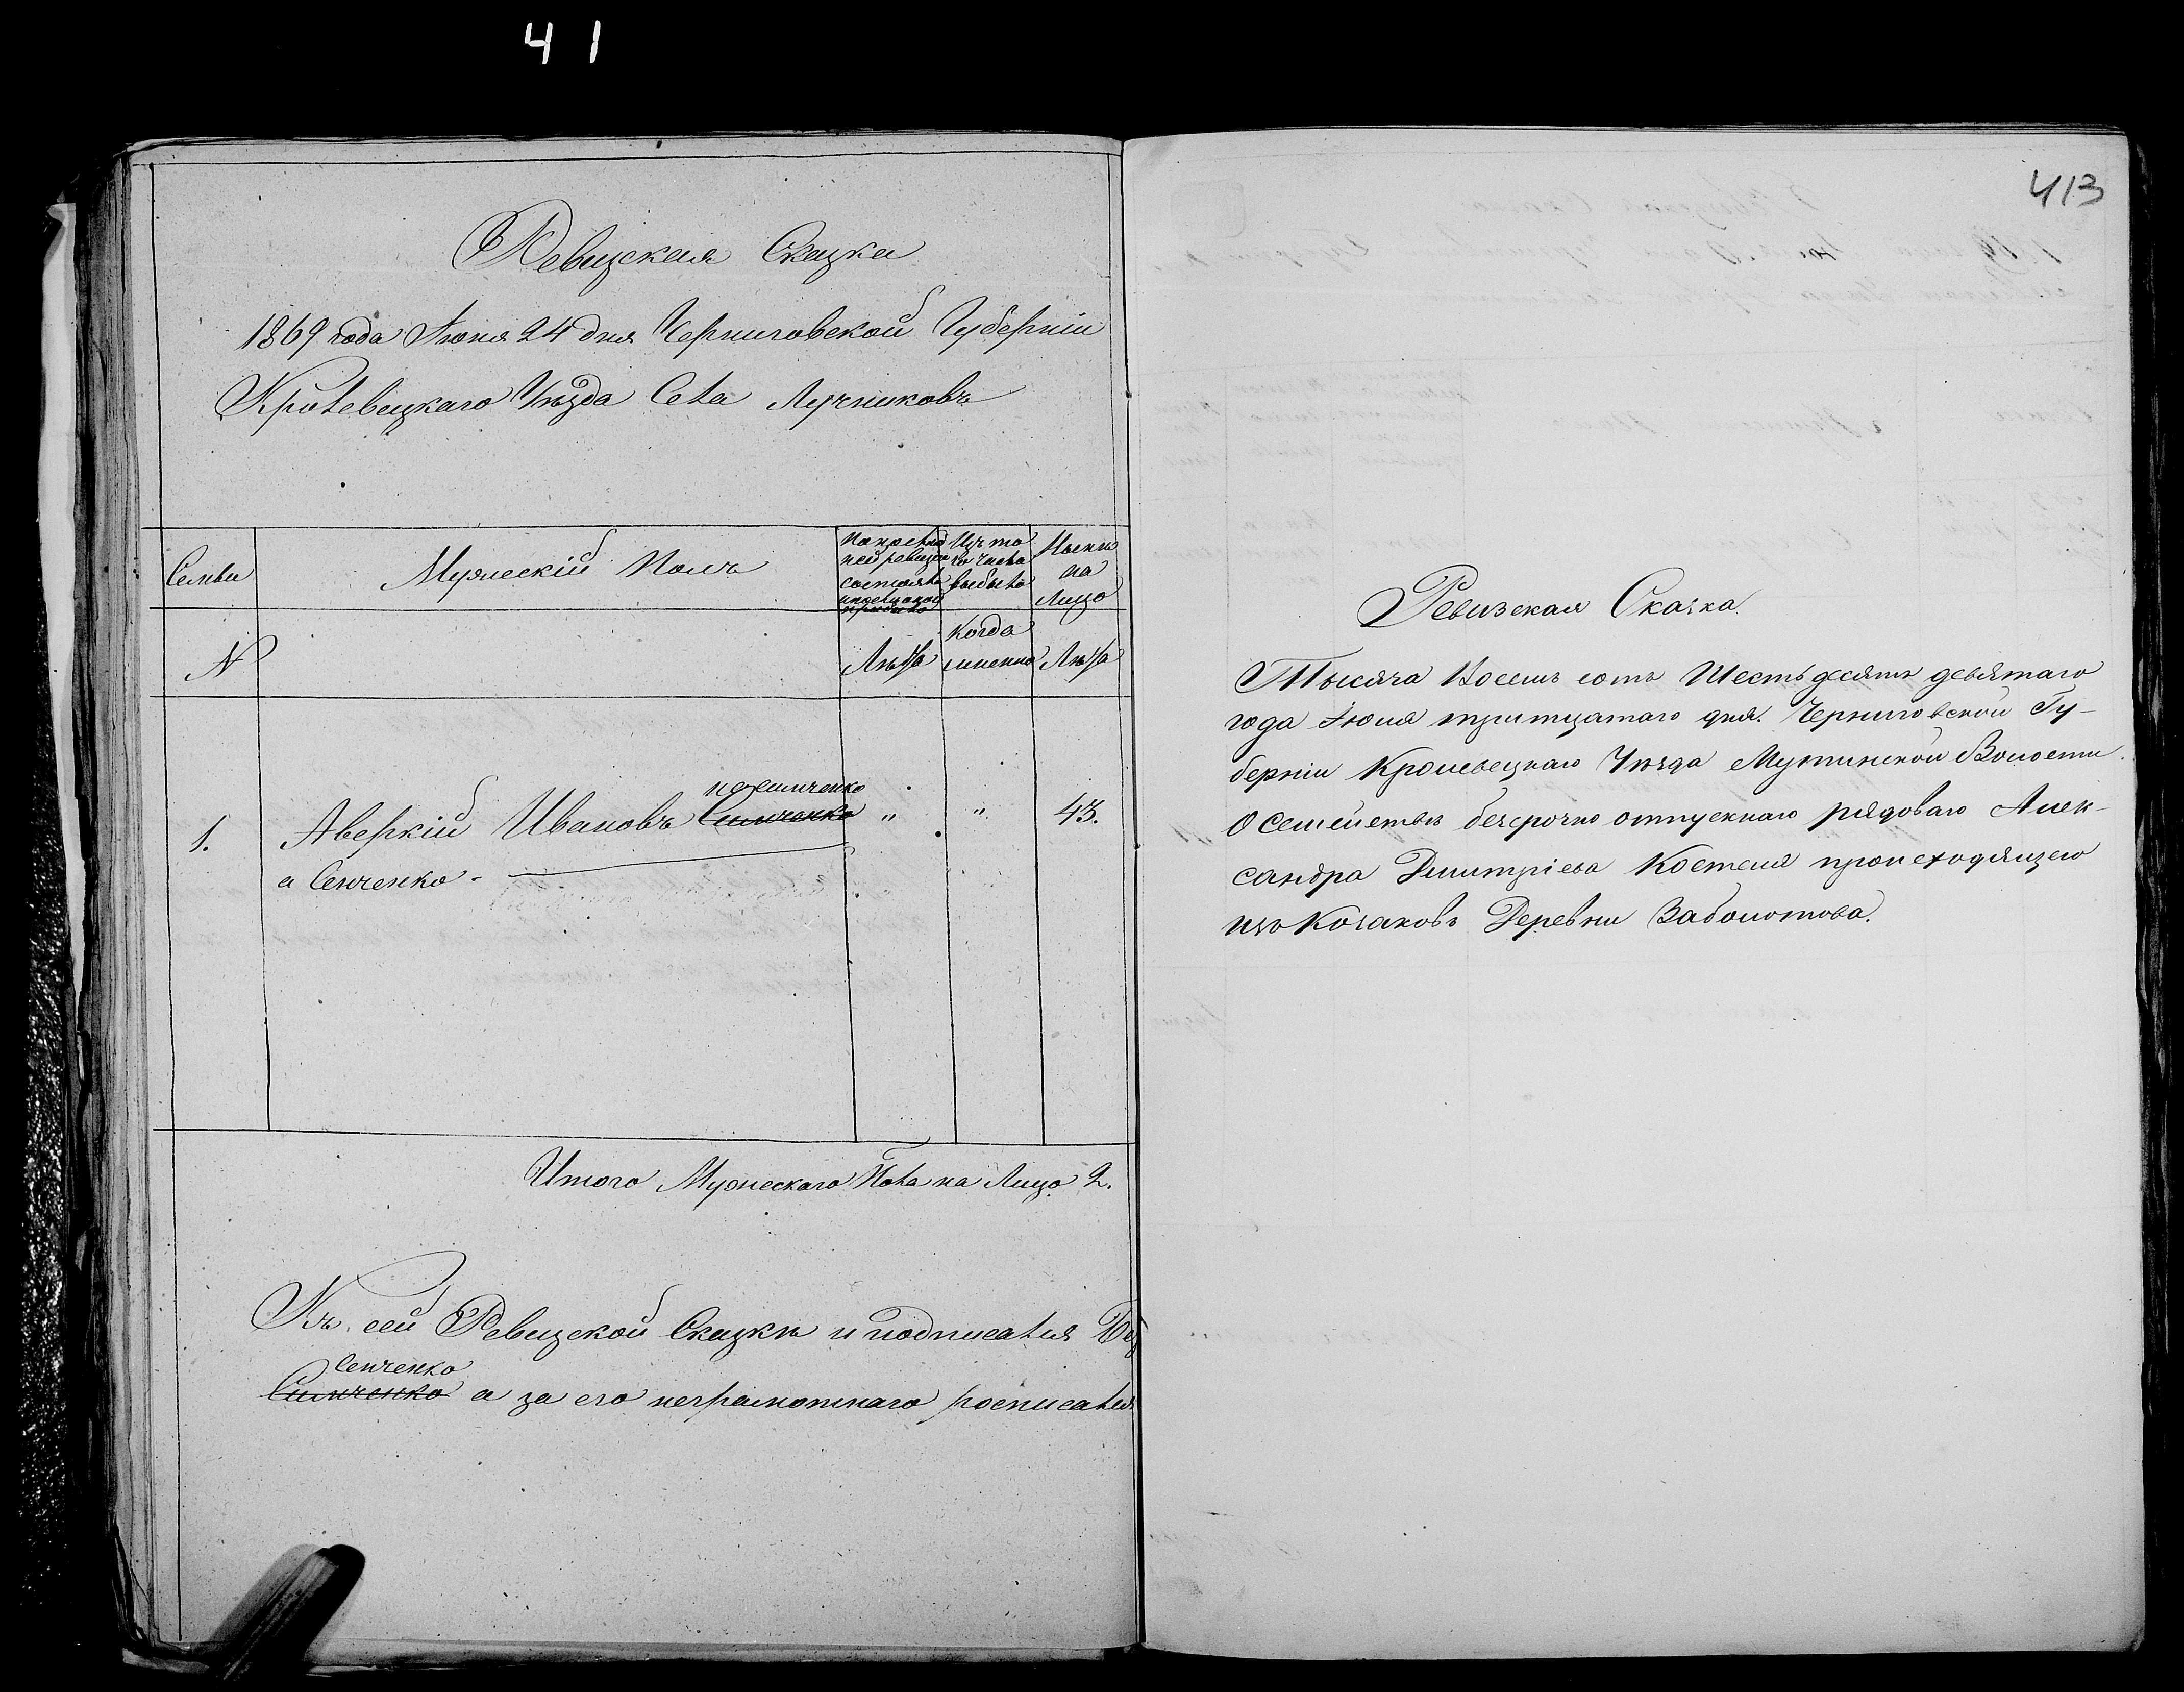 41
Ревизская Сказка
1869 года Июня 24 дня Черниговской Губерніи
Кролевецкаго Уѣзда Села Лучниковъ
Семьи
Мужескій Полъ
По послѣд
ней ревизіи
состояло
и послѣ оной
прибыло
Изъ то
го числа
выбыло
Нынѣ
на
Лицо
N
Лѣта
Когда
именно
Лѣта
неоминченко
1. Аверкій Ивановъ Симченко " " 43.
а Сенченко -
Итого Мужескаго Пола на Лицо 2.
Къ сей Ревизской Сказкѣ и подписался
Сенченко
Симченко а за его неграмотнаго росписался
413
Ревизская Сказка.
Тысяча Восемь сотъ Шестьдесятъ девятаго
года Іюля тритцатаго дня. Черниговской Гу-
берніи Кролевецкаго Уѣзда Мутинской Волости.
О семействѣ безсрочно отпускнаго рядоваго Алек-
сандра Дмитріева Костеля происходящего
изъ Козаковъ Деревни Заболотова.